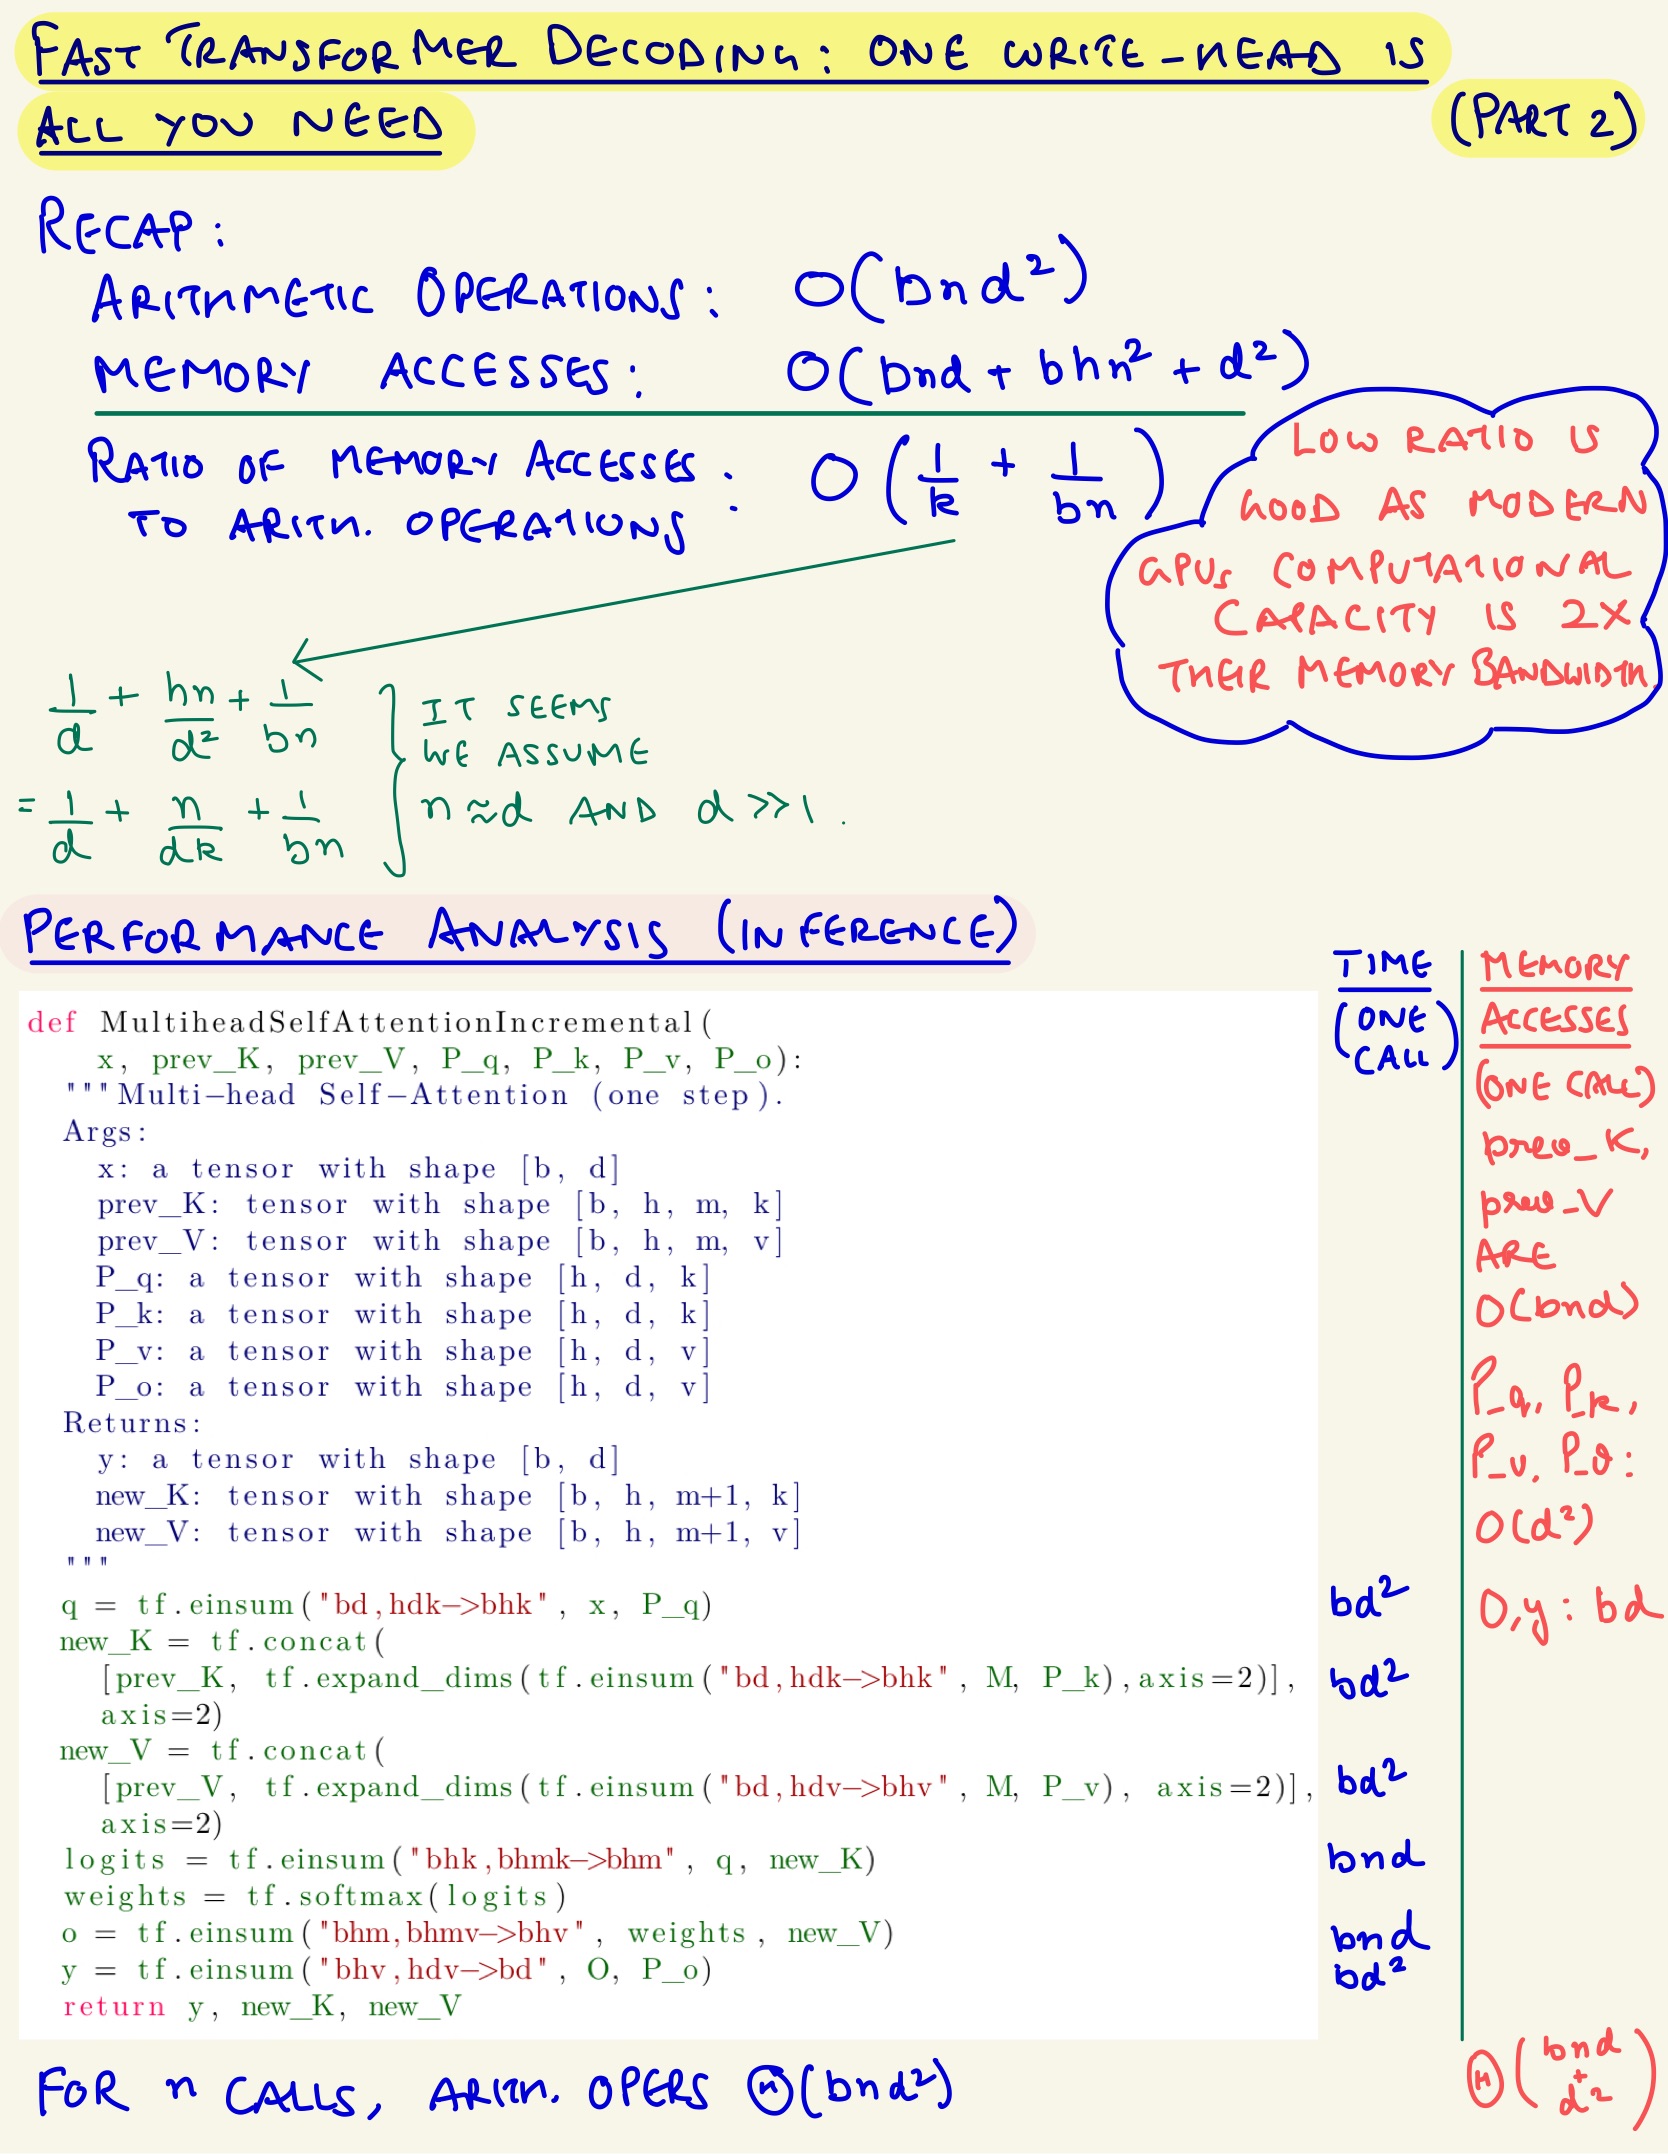 FAST TRANSFORMER DECODING: ONE WRITE-HEAD IS
ALL YOU NEED
(PART 2)
RECAP:
ARITHMETIC OPERATIONS: O(bnd²)
MEMORY ACCESSES: O(bnd + bhn² + d²)
RATIO OF MEMORY ACCESSES
TO ARITH. OPERATIONS : O(1/k + 1/bn)
LOW RATIO IS
GOOD AS MODERN
GPUs COMPUTATIONAL
CAPACITY IS 2X
THEIR MEMORY BANDWIDTH
1/d + hn/d² + 1/bn
= 1/d + n/dk + 1/bn
IT SEEMS
WE ASSUME
n≈d AND d>>1.
PERFORMANCE ANALYSIS (INFERENCE)
TIME
(ONE CALL)
MEMORY
ACCESSES
(ONE CALL)
prev_K,
prev_V
ARE
O(bnd)
P_q, P_k,
P_v, P_o:
O(d²)
O,y: bd
def MultiheadSelfAttentionIncremental(
x, prev_K, prev_V, P_q, P_k, P_v, P_o):
"""Multi-head Self-Attention (one step).
Args:
x: a tensor with shape [b, d]
prev_K: tensor with shape [b, h, m, k]
prev_V: tensor with shape [b, h, m, v]
P_q: a tensor with shape [h, d, k]
P_k: a tensor with shape [h, d, k]
P_v: a tensor with shape [h, d, v]
P_o: a tensor with shape [h, d, v]
Returns:
y: a tensor with shape [b, d]
new_K: tensor with shape [b, h, m+1, k]
new_V: tensor with shape [b, h, m+1, v]
"""
q = tf.einsum("bd,hdk->bhk", x, P_q) bd²
new_K = tf.concat(
[prev_K, tf.expand_dims(tf.einsum("bd,hdk->bhk", M, P_k),axis=2)], bd²
axis=2)
new_V = tf.concat(
[prev_V, tf.expand_dims(tf.einsum("bd,hdv->bhv", M, P_v), axis=2)], bd²
axis=2)
logits = tf.einsum("bhk,bhmk->bhm", q, new_K) bnd
weights = tf.softmax(logits)
o = tf.einsum("bhm,bhmv->bhv", weights, new_V) bnd
y = tf.einsum("bhv,hdv->bd", O, P_o) bd²
return y, new_K, new_V
FOR n CALLS, ARITH. OPERS Θ(bnd²)
Θ(bnd + d²)